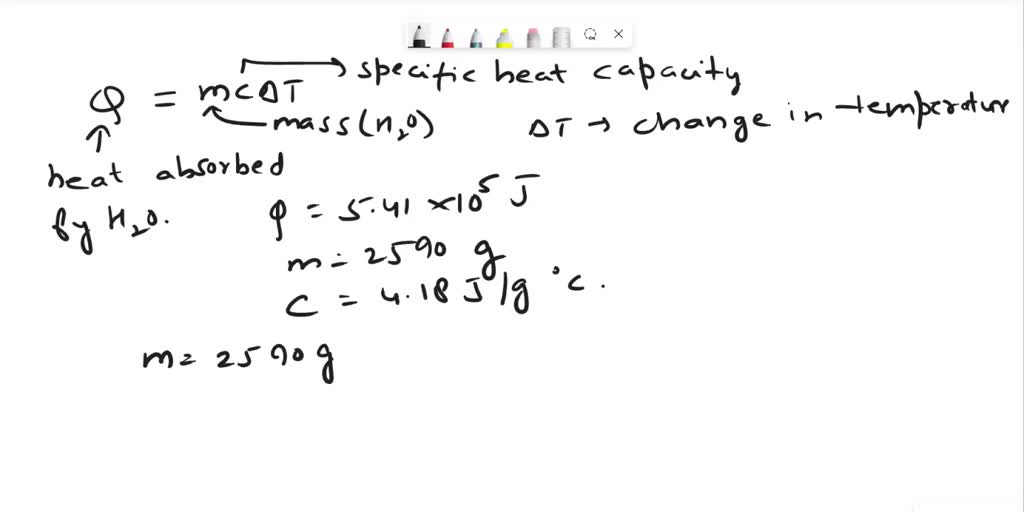 → specific heat capacity
Q = mcΔT
mass (H₂O)
ΔT → change in temperature
heat absorbed
by H₂O.
q = 5.41 × 10⁵ J
m = 2590 g
C = 4.18 J/g °c.
m = 2590 g